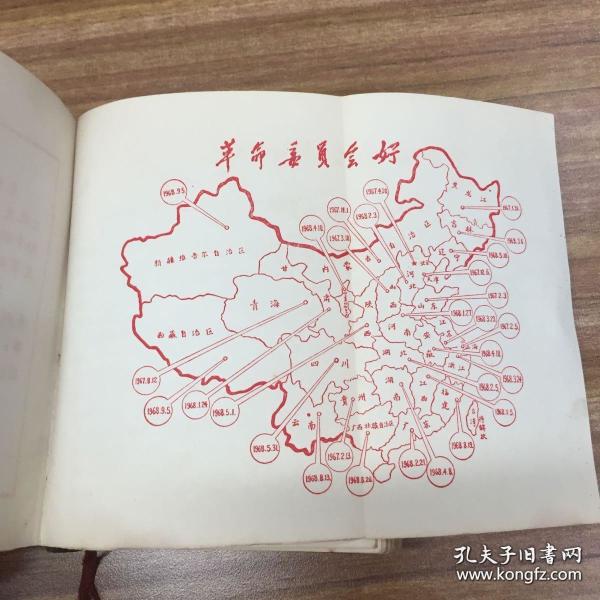 革命委员会好
1968.9.5
新疆维吾尔自治区
西藏自治区
青海
甘肃
内蒙古自治区
黑龙江
吉林
辽宁
河北
山西
山东
陕西
河南
江苏
安徽
湖北
浙江
四川
贵州
湖南
江西
福建
云南
广西壮族自治区
广东
上海
天津
1967.11.1
1968.4.10
1967.3.18
1968.2.3
1968.3.6
1968.5.10
1967.12.6
1967.2.3
1968.1.27
1968.3.23
1967.2.5
1968.4.18
1968.3.24
1968.2.5
1968.1.5
1967.8.12
1968.9.5
1968.1.24
1968.5.1
1968.5.31
1968.8.13
1967.2.13
1968.8.26
1968.2.21
1968.4.8
1968.8.19
孔夫子旧书网
www.kongfz.com